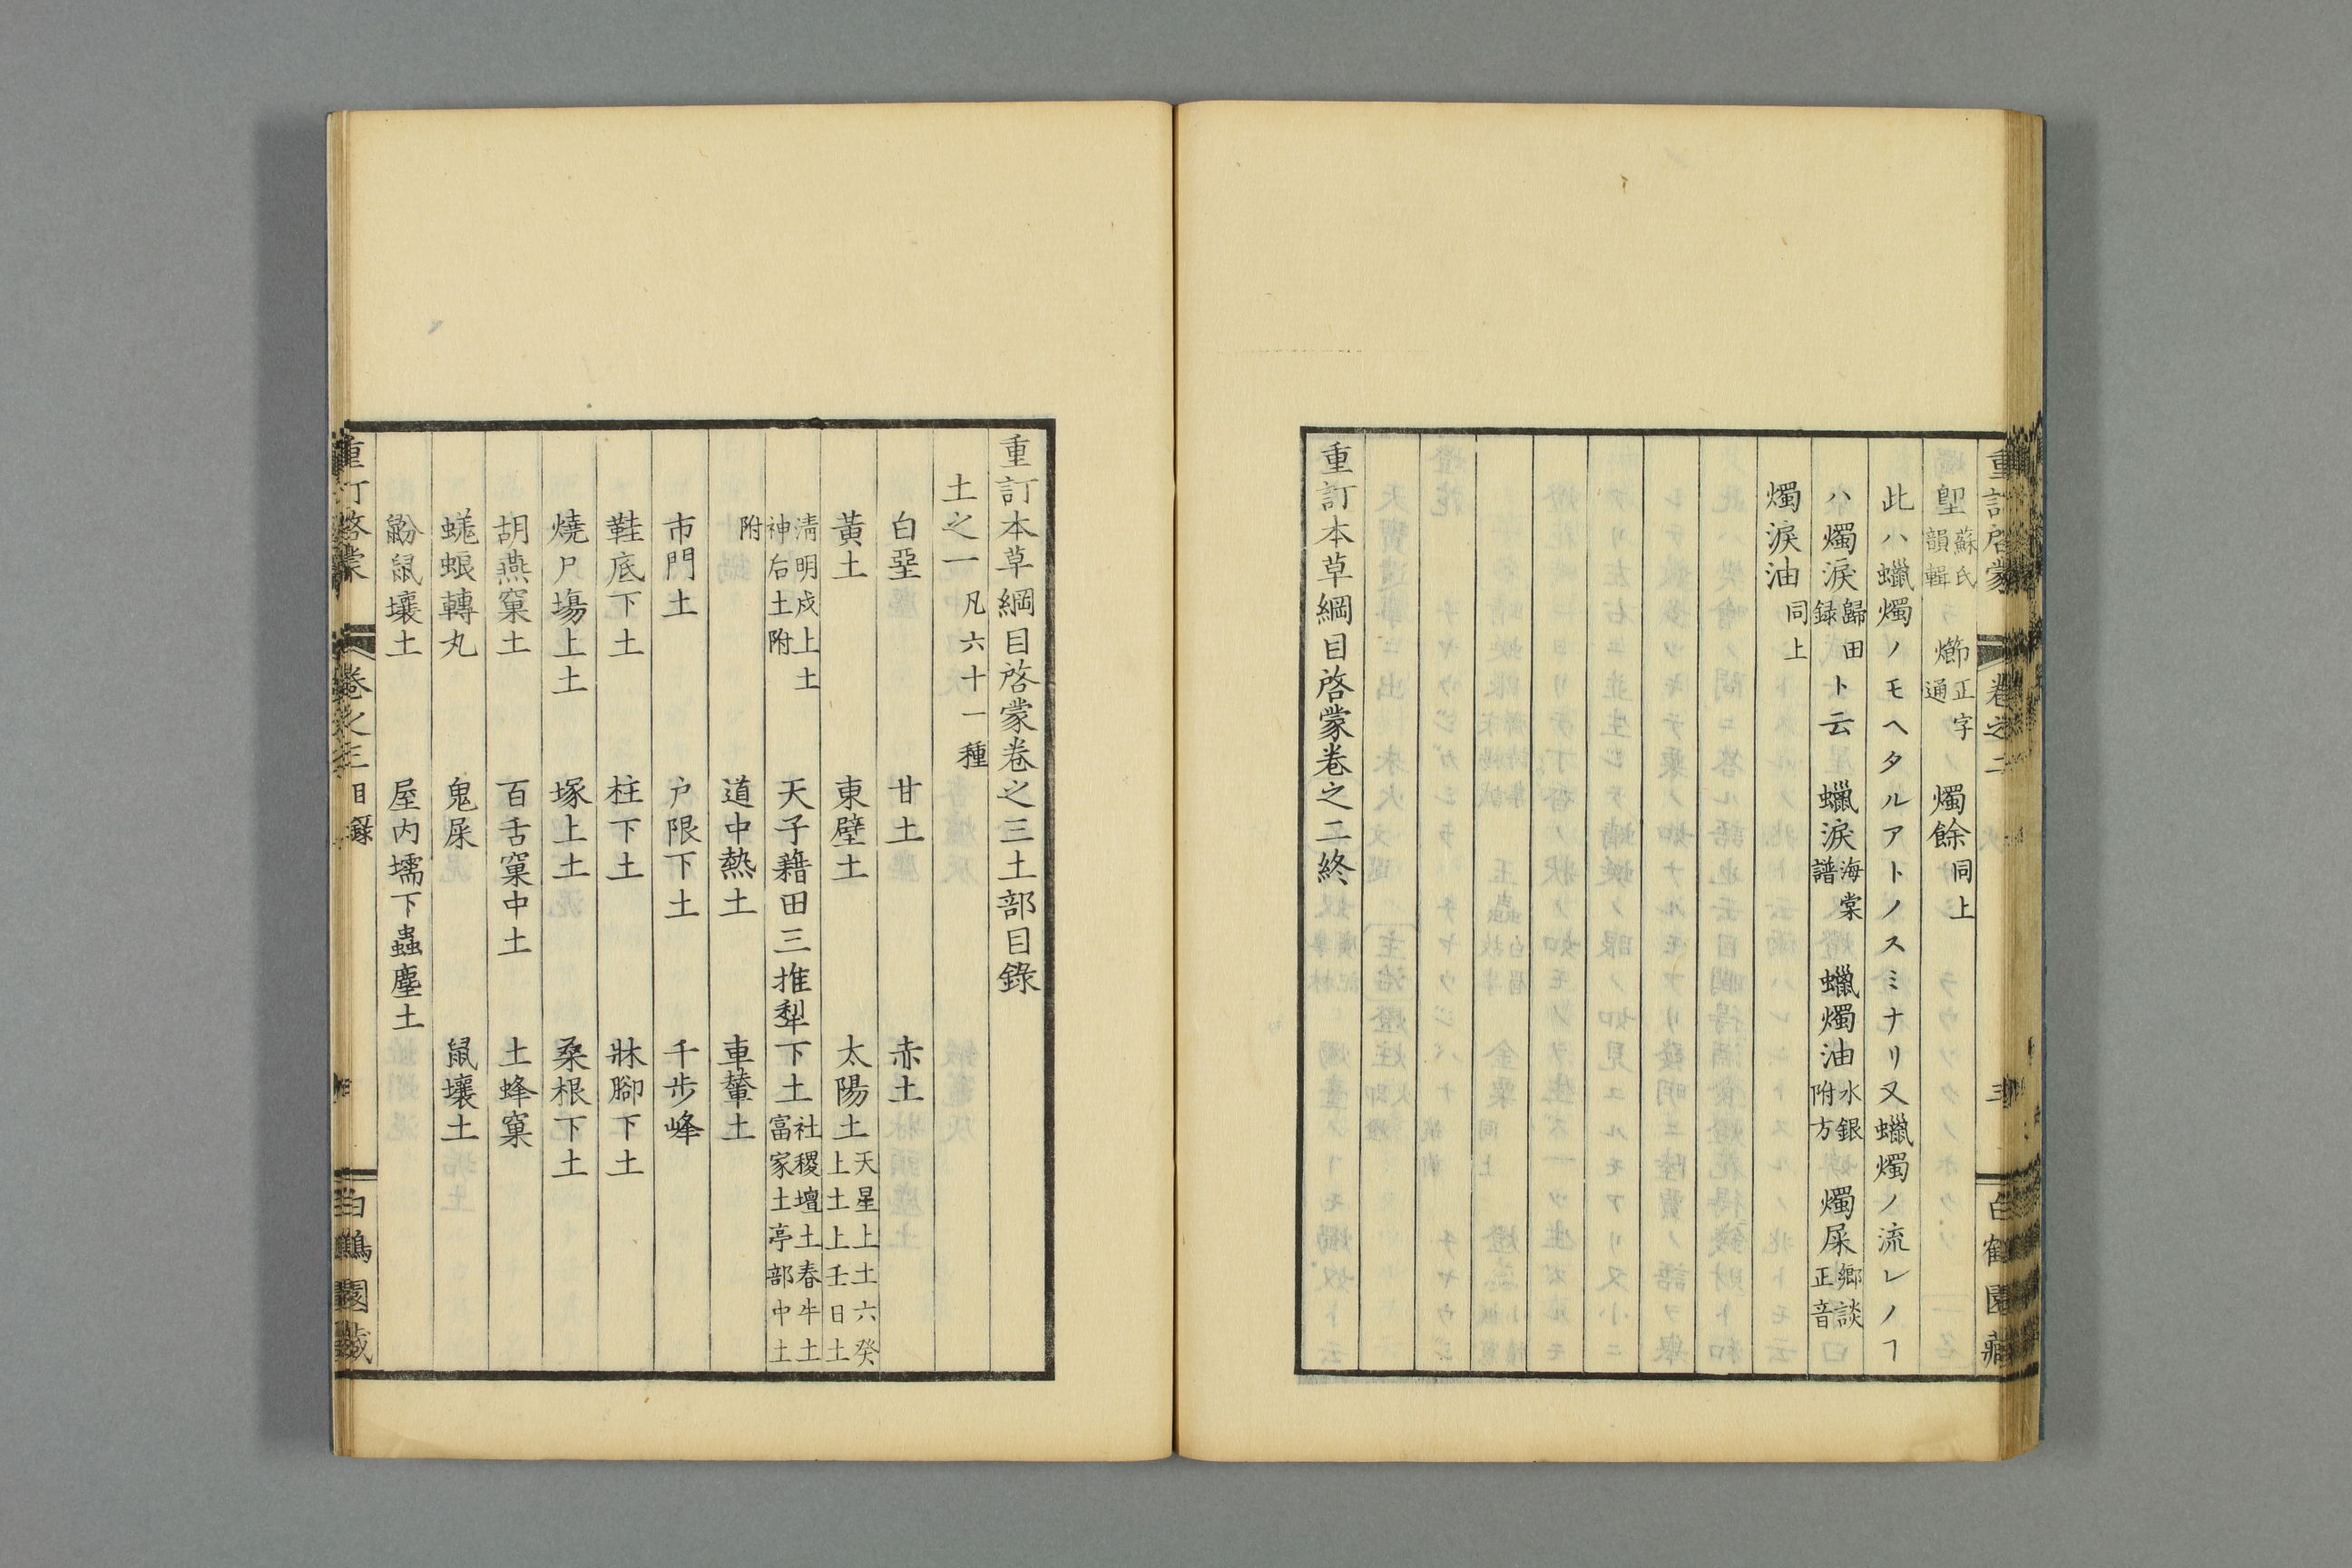 重訂啓蒙 卷之二 白鶴園藏
堲 蘇氏韻輯 㸅 正字通 燭餘 同上
此ハ蠟燭ノモヘタルアトノスミナリ又蠟燭ノ流レノヿ
ハ燭淚 歸田録 ト云 蠟淚 海棠譜 蠟燭油 水銀附方 燭屎 鄉談正音
燭淚油 同上
重訂本草綱目啓蒙卷之二終
重訂本草綱目啓蒙卷之三土部目錄
土之一 凡六十一種
白堊 甘土 赤土
黃土 東壁土 太陽土 天星上土六癸上土上壬日土
清明戍上土神后土附 天子籍田三推犁下土 社稷壇土春牛土富家土亭部中土
附 道中熱土 車輦土
市門土 戶限下土 千步峰
鞋底下土 柱下土 牀腳下土
燒尸場上土 塚上土 桑根下土
胡燕窠土 百舌窠中土 土蜂窠
蜣蜋轉丸 鬼屎 鼠壤土
鼢鼠壤土 屋内壖下蟲塵土
重訂啓蒙 卷之三 目録 白鶴園藏